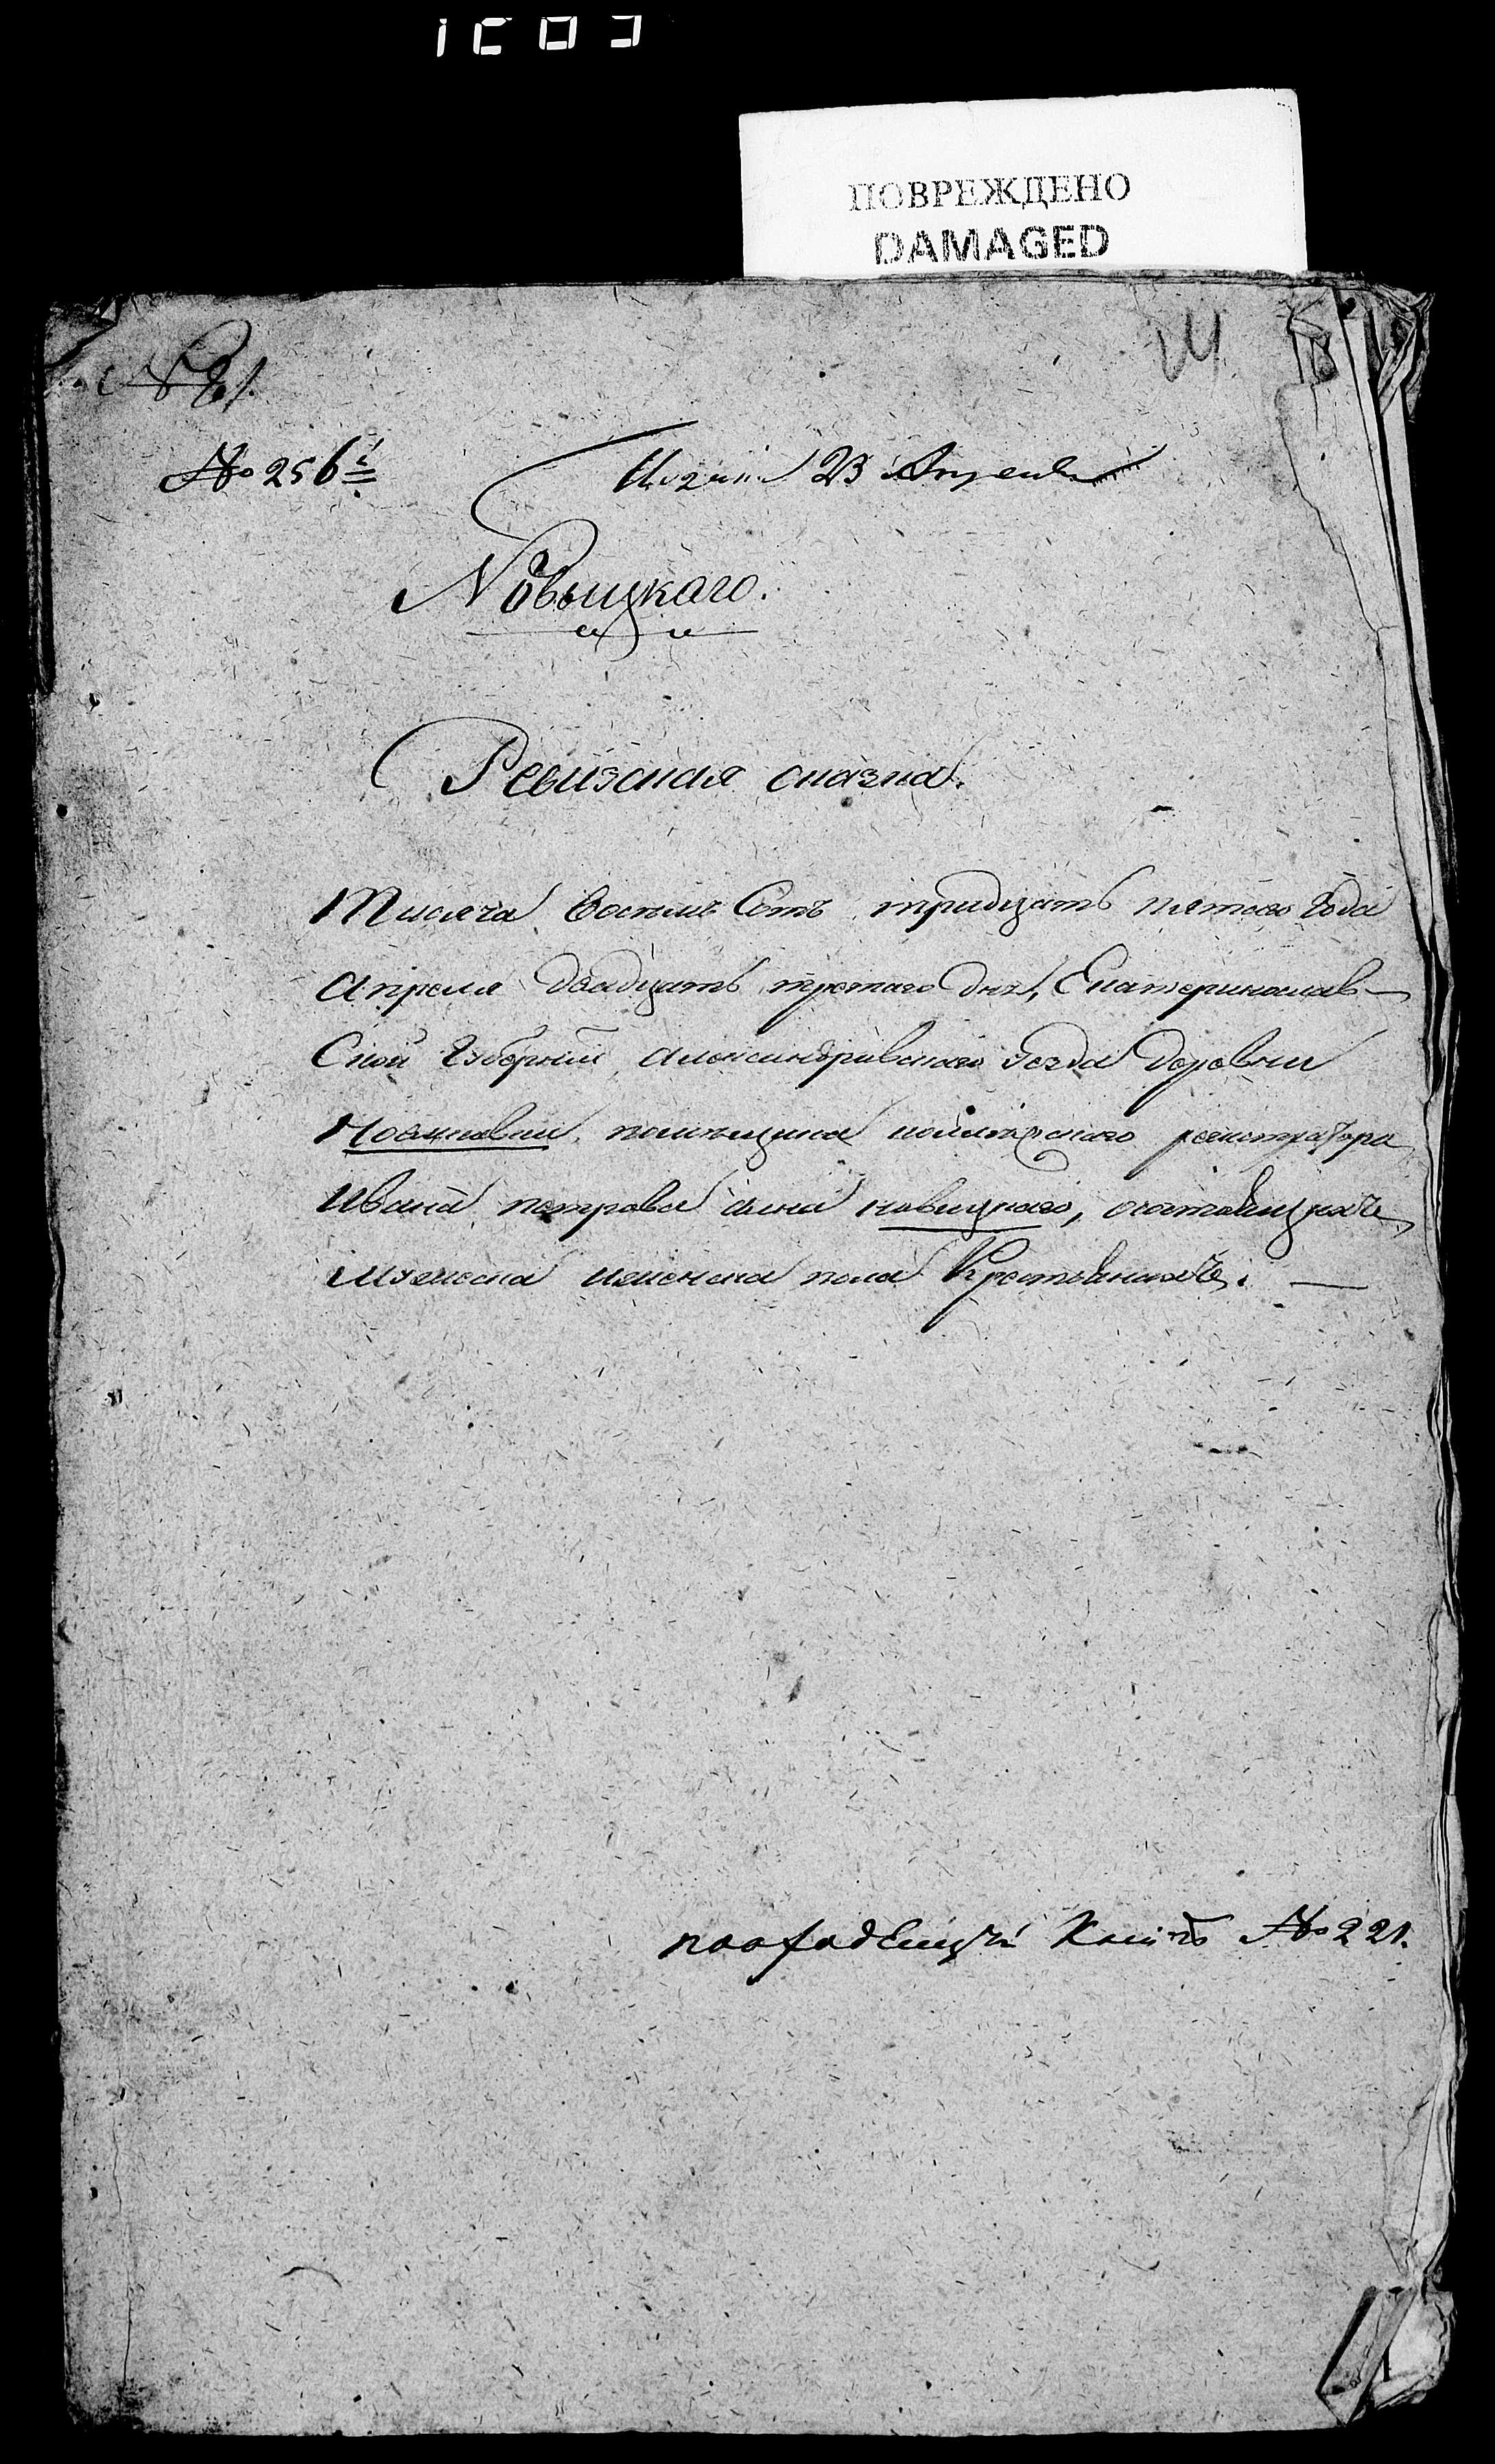 ПОВРЕЖДЕНО
DAMAGED
№ 256й
23 Апреля
Новыцкаго.
Ревизская сказка.
Тисяча Восемь Сотъ тридцать пятого Года
Апреля двадцать третаго дня, Екатеринослав-
Ской Губернии Александравского уезда деревни
помещика колежского регистратора
Ивана петрова сына новицкаго, осостоящихъ
мужеска и женска пола Крестьянахъ.
№ 221.